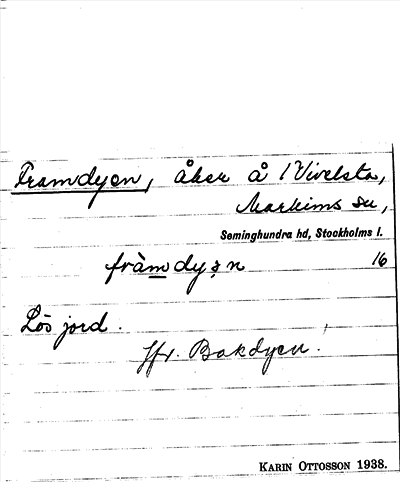 Framdyen, åker å 1 Vivelsta,
Markims sn,
Seminghundra hd, Stockholms l.
fràmdyȝn 16
Lös jord.
Jfr. Bakdyen.
KARIN OTTOSSON 1938.